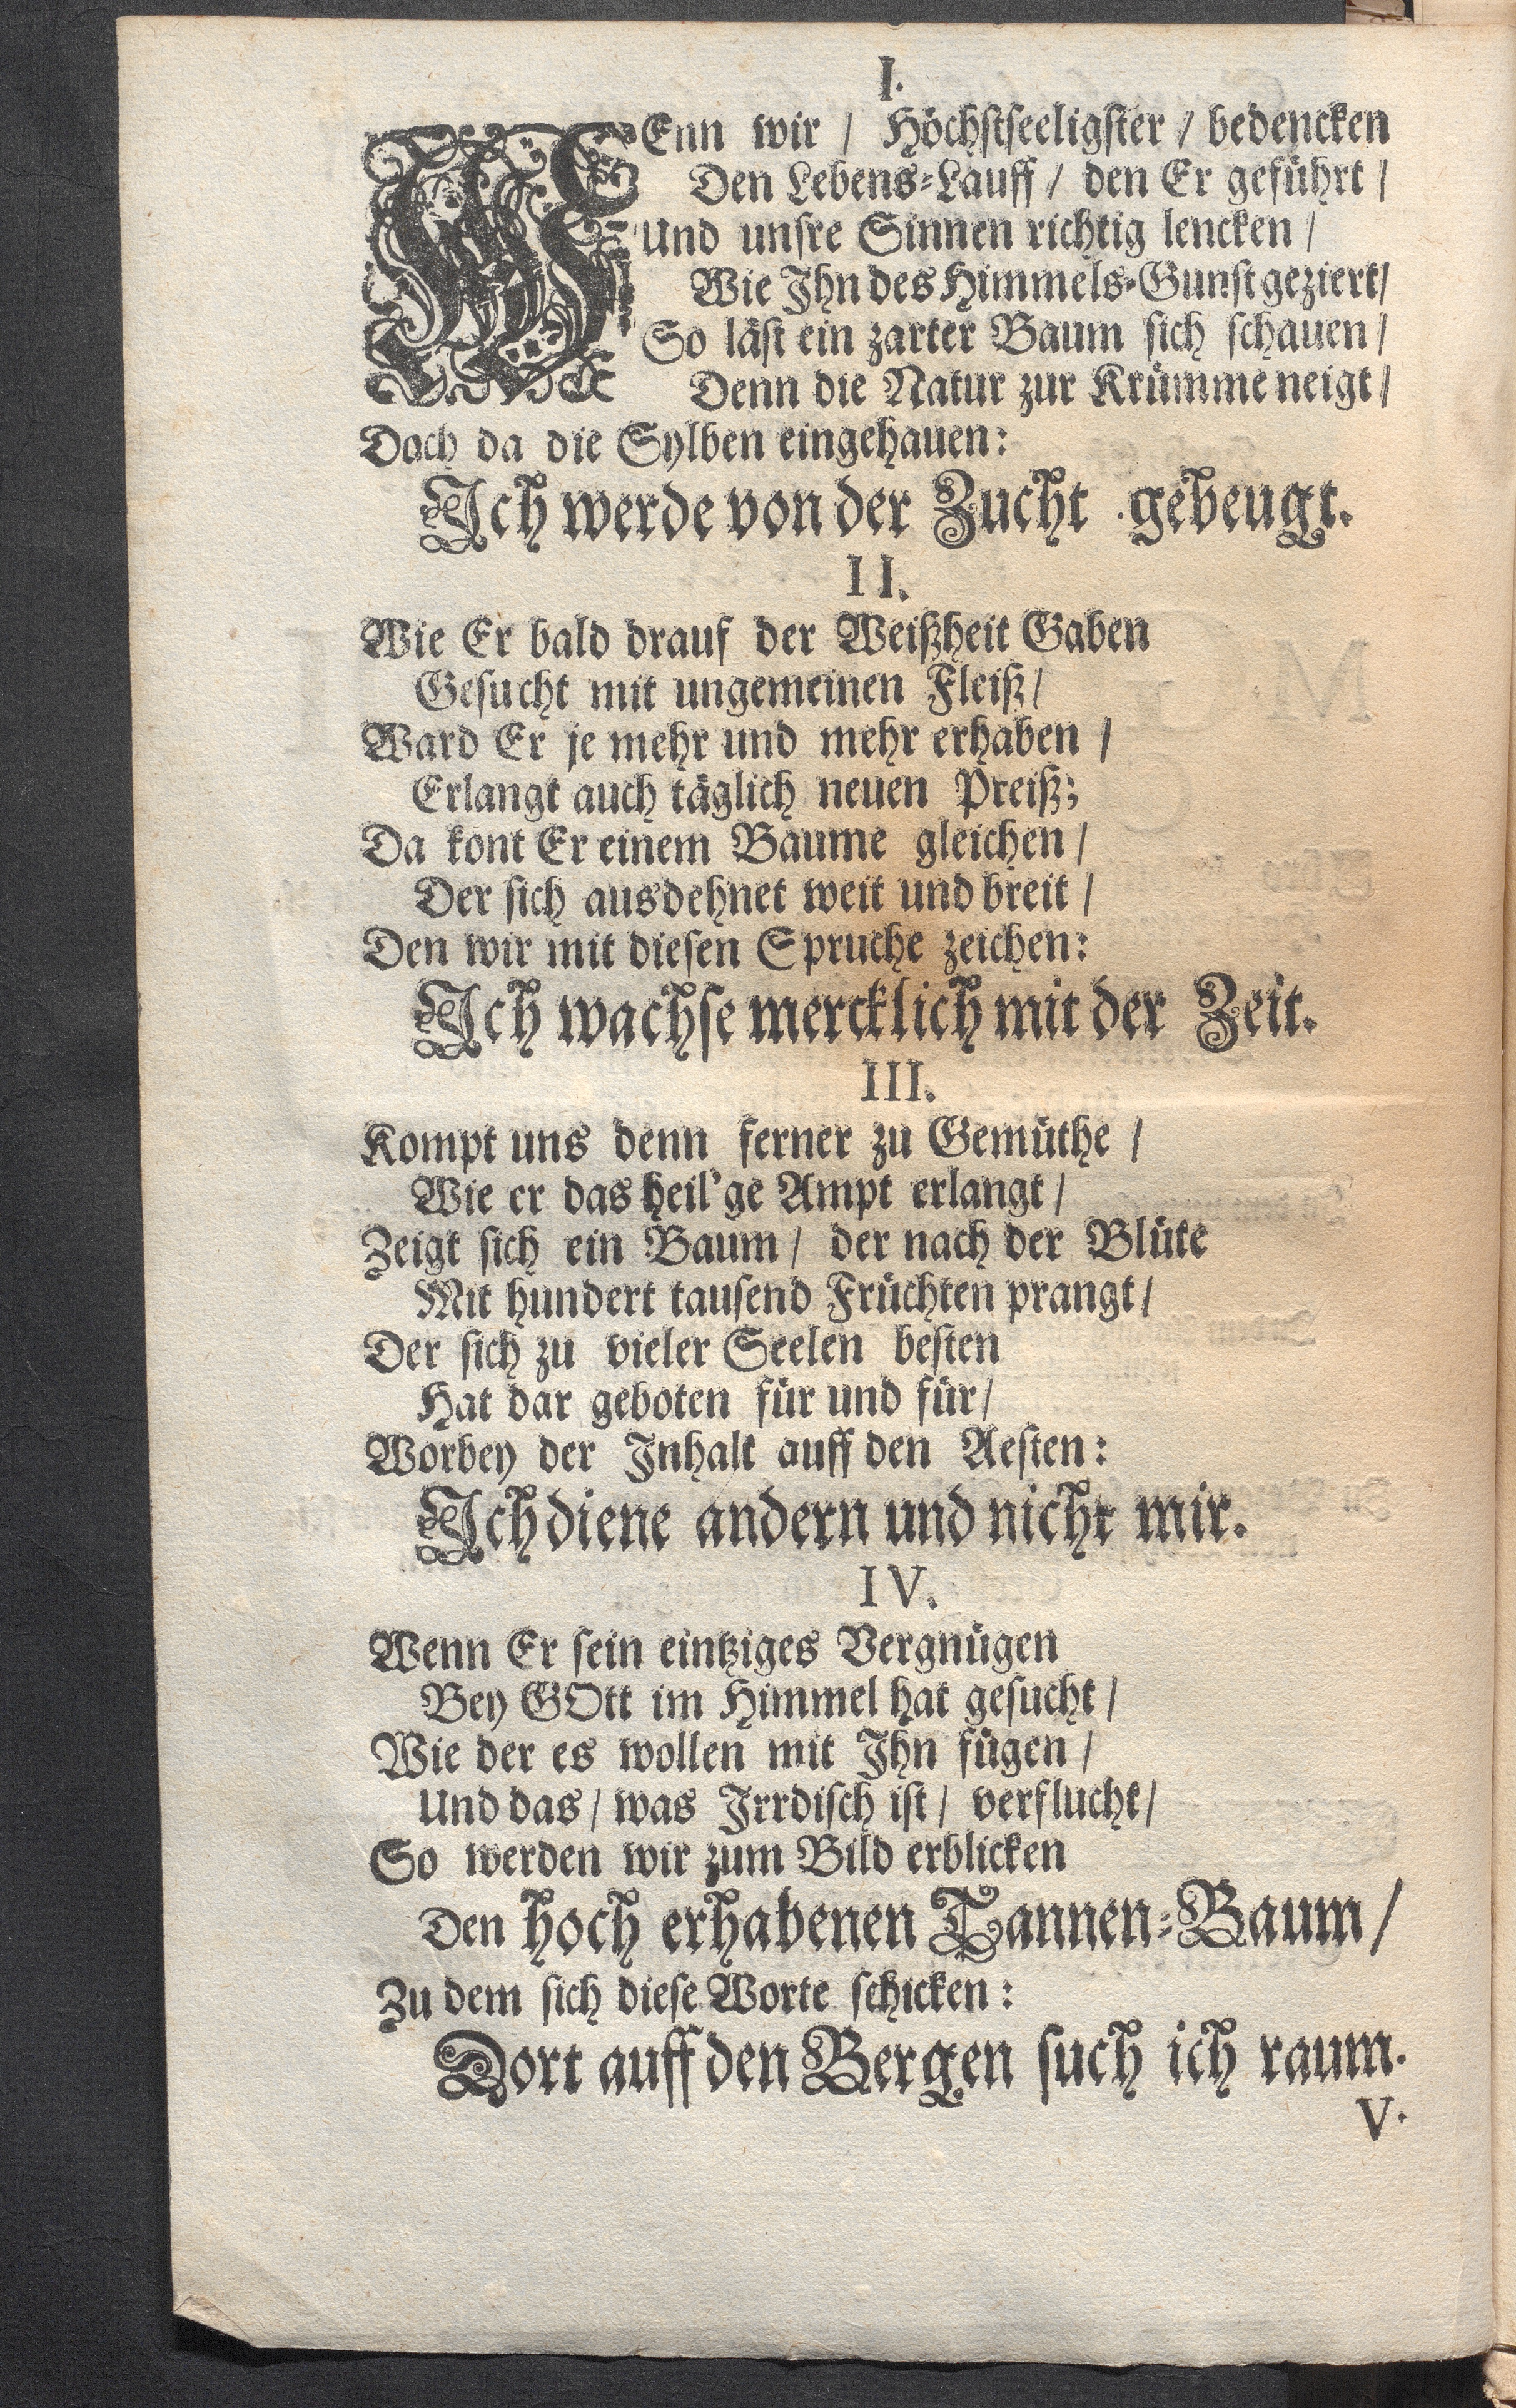 I.
WEnn wir / Höchstseeligster / bedencken
Den Lebens-Lauff / den Er geführt /
Und unsre Sinnen richtig lencken /
Wie Ihn des Himmels-Gunst geziert /
So läst ein zarter Baum sich schauen /
Denn die Natur zur Krümme neigt /
Doch da die Sylben eingehauen:
Ich werde von der Zucht gebeugt.
II.
Wie Er bald drauf der Weißheit Gaben
Gesucht mit ungemeinen Fleiß /
Ward Er je mehr und mehr erhaben /
Erlangt auch täglich neuen Preiß;
Da kont Er einem Baume gleichen /
Der sich ausdehnet weit und breit /
Den wir mit diesen Spruche zeichen:
Ich wachse mercklich mit der Zeit.
III.
Kompt uns denn ferner zu Gemüthe /
Wie er das heil'ge Ampt erlangt /
Zeigt sich ein Baum / der nach der Blüte
Mit hundert tausend Früchten prangt /
Der sich zu vieler Seelen besten
Hat dar geboten für und für /
Worbey der Inhalt auff den Aesten:
Ich diene andern und nicht mir.
IV.
Wenn Er sein eintziges Vergnügen
Bey GOtt im Himmel hat gesucht /
Wie der es wollen mit Ihn fügen /
Und das / was Irrdisch ist / verflucht /
So werden wir zum Bild erblicken
Den hoch erhabenen Tannen-Baum /
Zu dem sich diese Worte schicken:
Dort auff den Bergen such ich raum.
V.